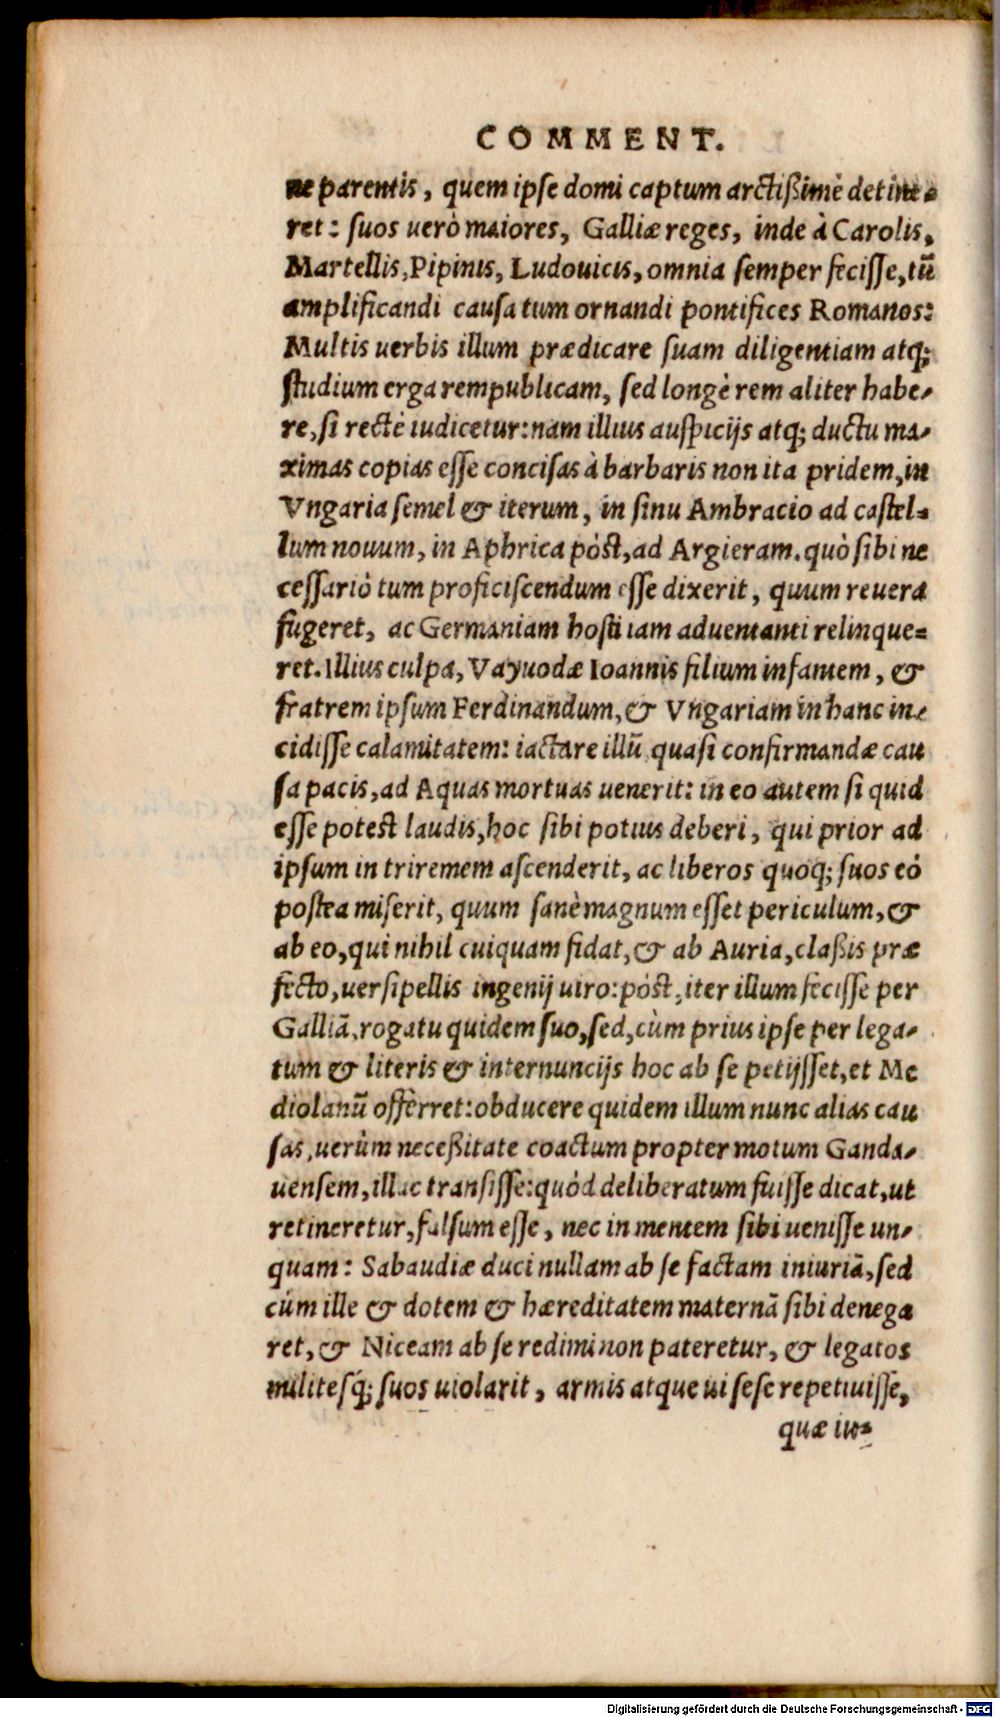 COMMENT.
ne parentis, quem ipse domi captum arctißimè detine-
ret: suos uerò maiores, Galliæ reges, inde à Carolis,
Martellis, Pipinis, Ludouicis, omnia semper fecisse, tũ
amplificandi causa tum ornandi pontifices Romanos:
Multis uerbis illum prædicare suam diligentiam atq;
studium erga rempublicam, sed longè rem aliter habe-
re, si rectè iudicetur: nam illius auspicijs atq; ductu ma-
ximas copias esse concisas à barbaris non ita pridem, in
Vngaria semel & iterum, in sinu Ambracio ad castel-
lum nouum, in Aphrica pòst, ad Argieram. quò sibi ne
cessariò tum proficiscendum esse dixerit, quum reuera
fugeret, ac Germaniam hosti iam aduentanti relinque-
ret. Illius culpa, Vayuodæ Ioannis filium infantem, &
fratrem ipsum Ferdinandum, & Vngariam in hanc in-
cidisse calamitatem: iactare illũ, quasi confirmandæ cau
sa pacis, ad Aquas mortuas uenerit: in eo autem si quid
esse potest laudis, hoc sibi potius deberi, qui prior ad
ipsum in triremem ascenderit, ac liberos quoq; suos eò
postea miserit, quum sanè magnum esset periculum, &
ab eo, qui nihil cuiquam fidat, & ab Auria, claßis præ
fecto, uersipellis ingenij uiro: pòst, iter illum fecisse per
Galliã, rogatu quidem suo, sed, cùm prius ipse per lega-
tum & literis & internuncijs hoc ab se petijsset, et Me
diolanũ offerret: obducere quidem illum nunc alias cau
sas, uerùm neceßitate coactum propter motum Ganda-
uensem, illac transisse: quòd deliberatum fuisse dicat, ut
retineretur, falsum esse, nec in mentem sibi uenisse un-
quam: Sabaudiæ duci nullam ab se factam iniuriã, sed
cúm ille & dotem & hæreditatem maternã sibi denega
ret, & Niceam ab se redimi non pateretur, & legatos
militesq́; suos uiolarit, armis atque ui sese repetiuisse,
quæ iu-
Digitalisierung gefördert durch die Deutsche Forschungsgemeinschaft - DFG